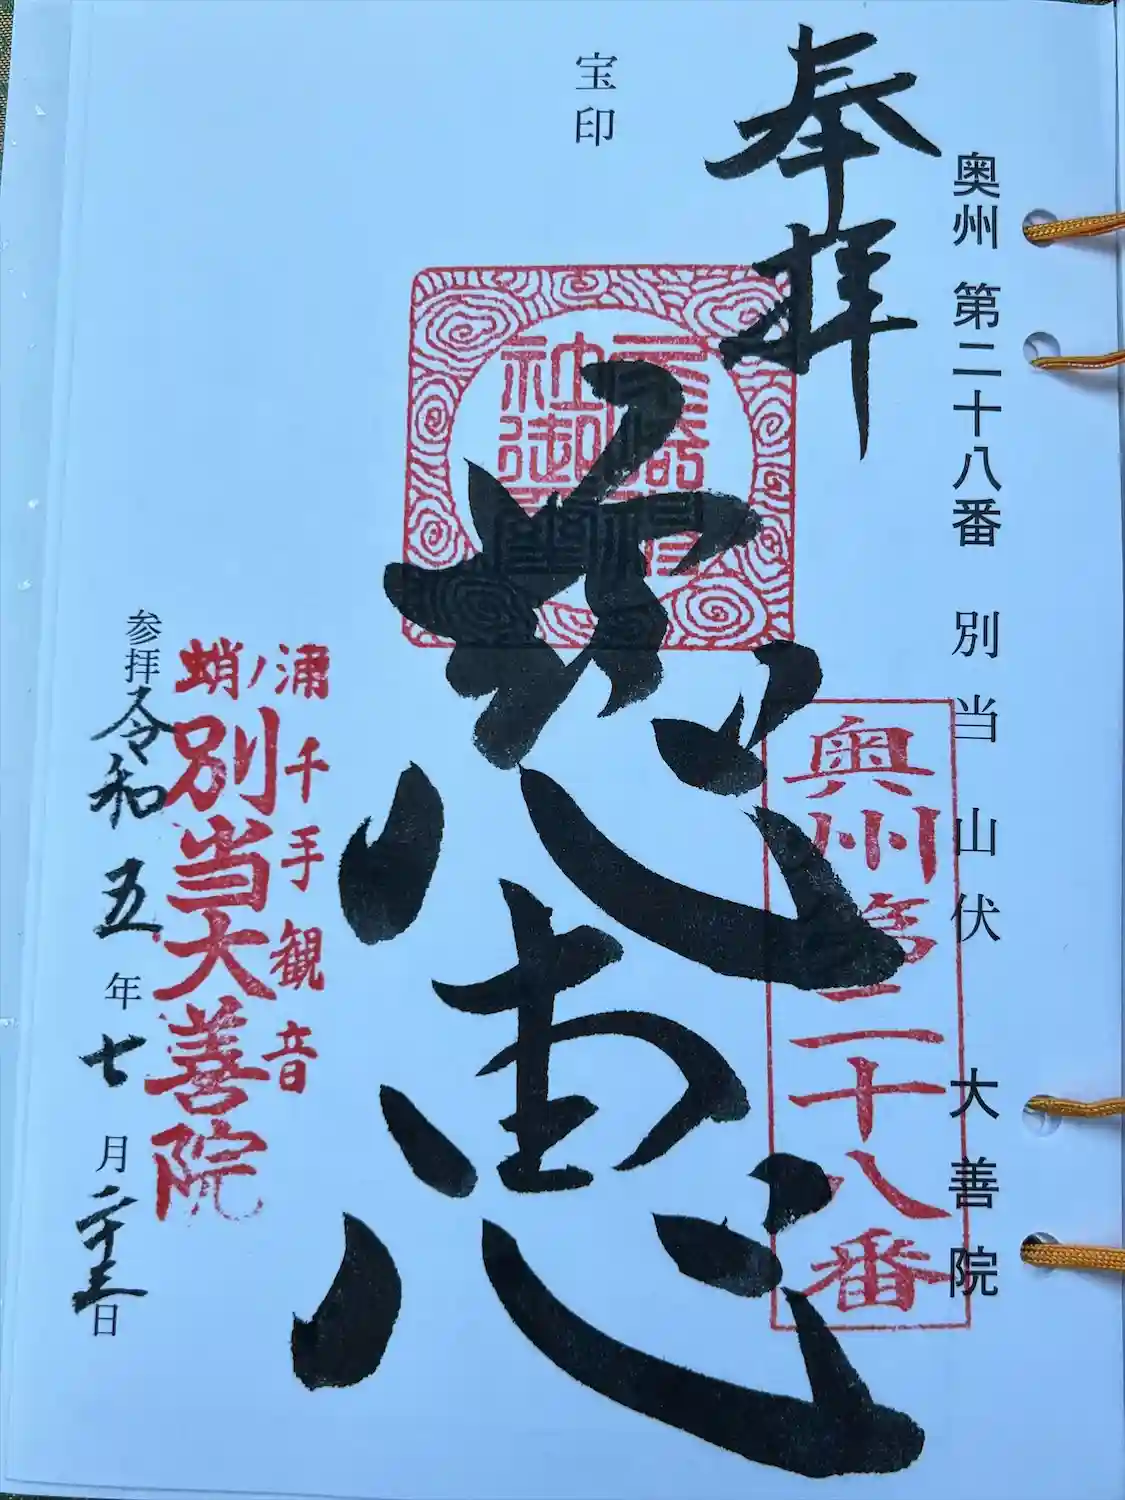 奥州 第二十八番 別当 山伏 大善院
奉拝
宝印
奥州第二十八番
浦千手観音
蛸ノ
別当大善院
参拝令和五年七月二十三日